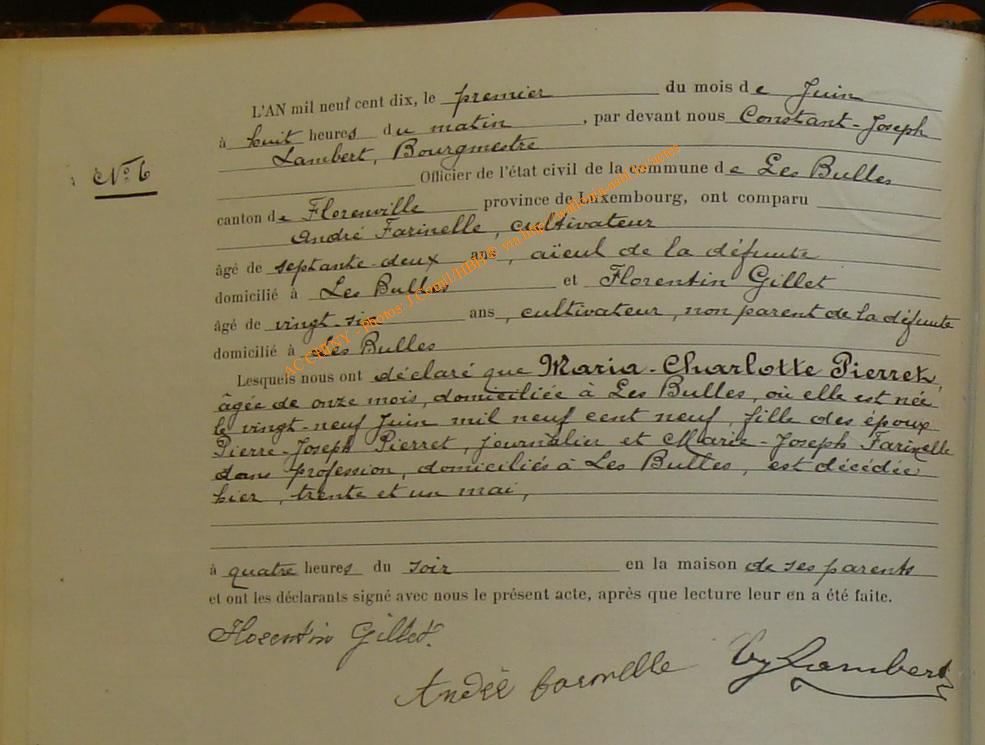 L'AN mil neuf cent dix, le premier du mois de Juin
à huit heures du matin, par devant nous Constant-Joseph
Lambert, Bourgmestre
N° 6
Officier de l'état civil de la commune de Les Bulles
canton de Florenville province de Luxembourg, ont comparu
André Farinelle, cultivateur
âgé de septante-deux ans, aïeul de la défunte
domicilié à Les Bulles et Florentin Gillet
âgé de vingt-six ans, cultivateur, non parent de la défunte
domicilié à Les Bulles
Lesquels nous ont déclaré que Maria-Charlotte Pierret,
âgée de onze mois, domiciliée à Les Bulles, où elle est née
le vingt-neuf Juin mil neuf cent neuf, fille des époux
Pierre-Joseph Pierret, journalier et Marie-Joseph Farinelle
sans profession, domiciliés à Les Bulles, est décédée
hier, trente et un mai,
à quatre heures du soir en la maison de ses parents
et ont les déclarants signé avec nous le présent acte, après que lecture leur en a été faite.
Florentin Gillet.
André Farinelle
Lambert
ACCMENY - photos: J.Camil/HBH® via